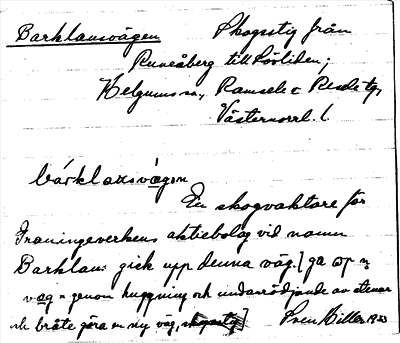 Barklausvägen Skogsstig från
Runeåberg till Lövliden;
Helgums sn, Ramsele o Resele tg,
Västernorrl. l.
bárklaxsvægen
En skogvaktare för
Graningeverkens aktiebolag vid namn
Barklaus gick upp denna väg. [ga ɯp η
væg = genom huggning och undanrödjande av stenar
och bråte göra en ny väg,
Sven Hiller 1933